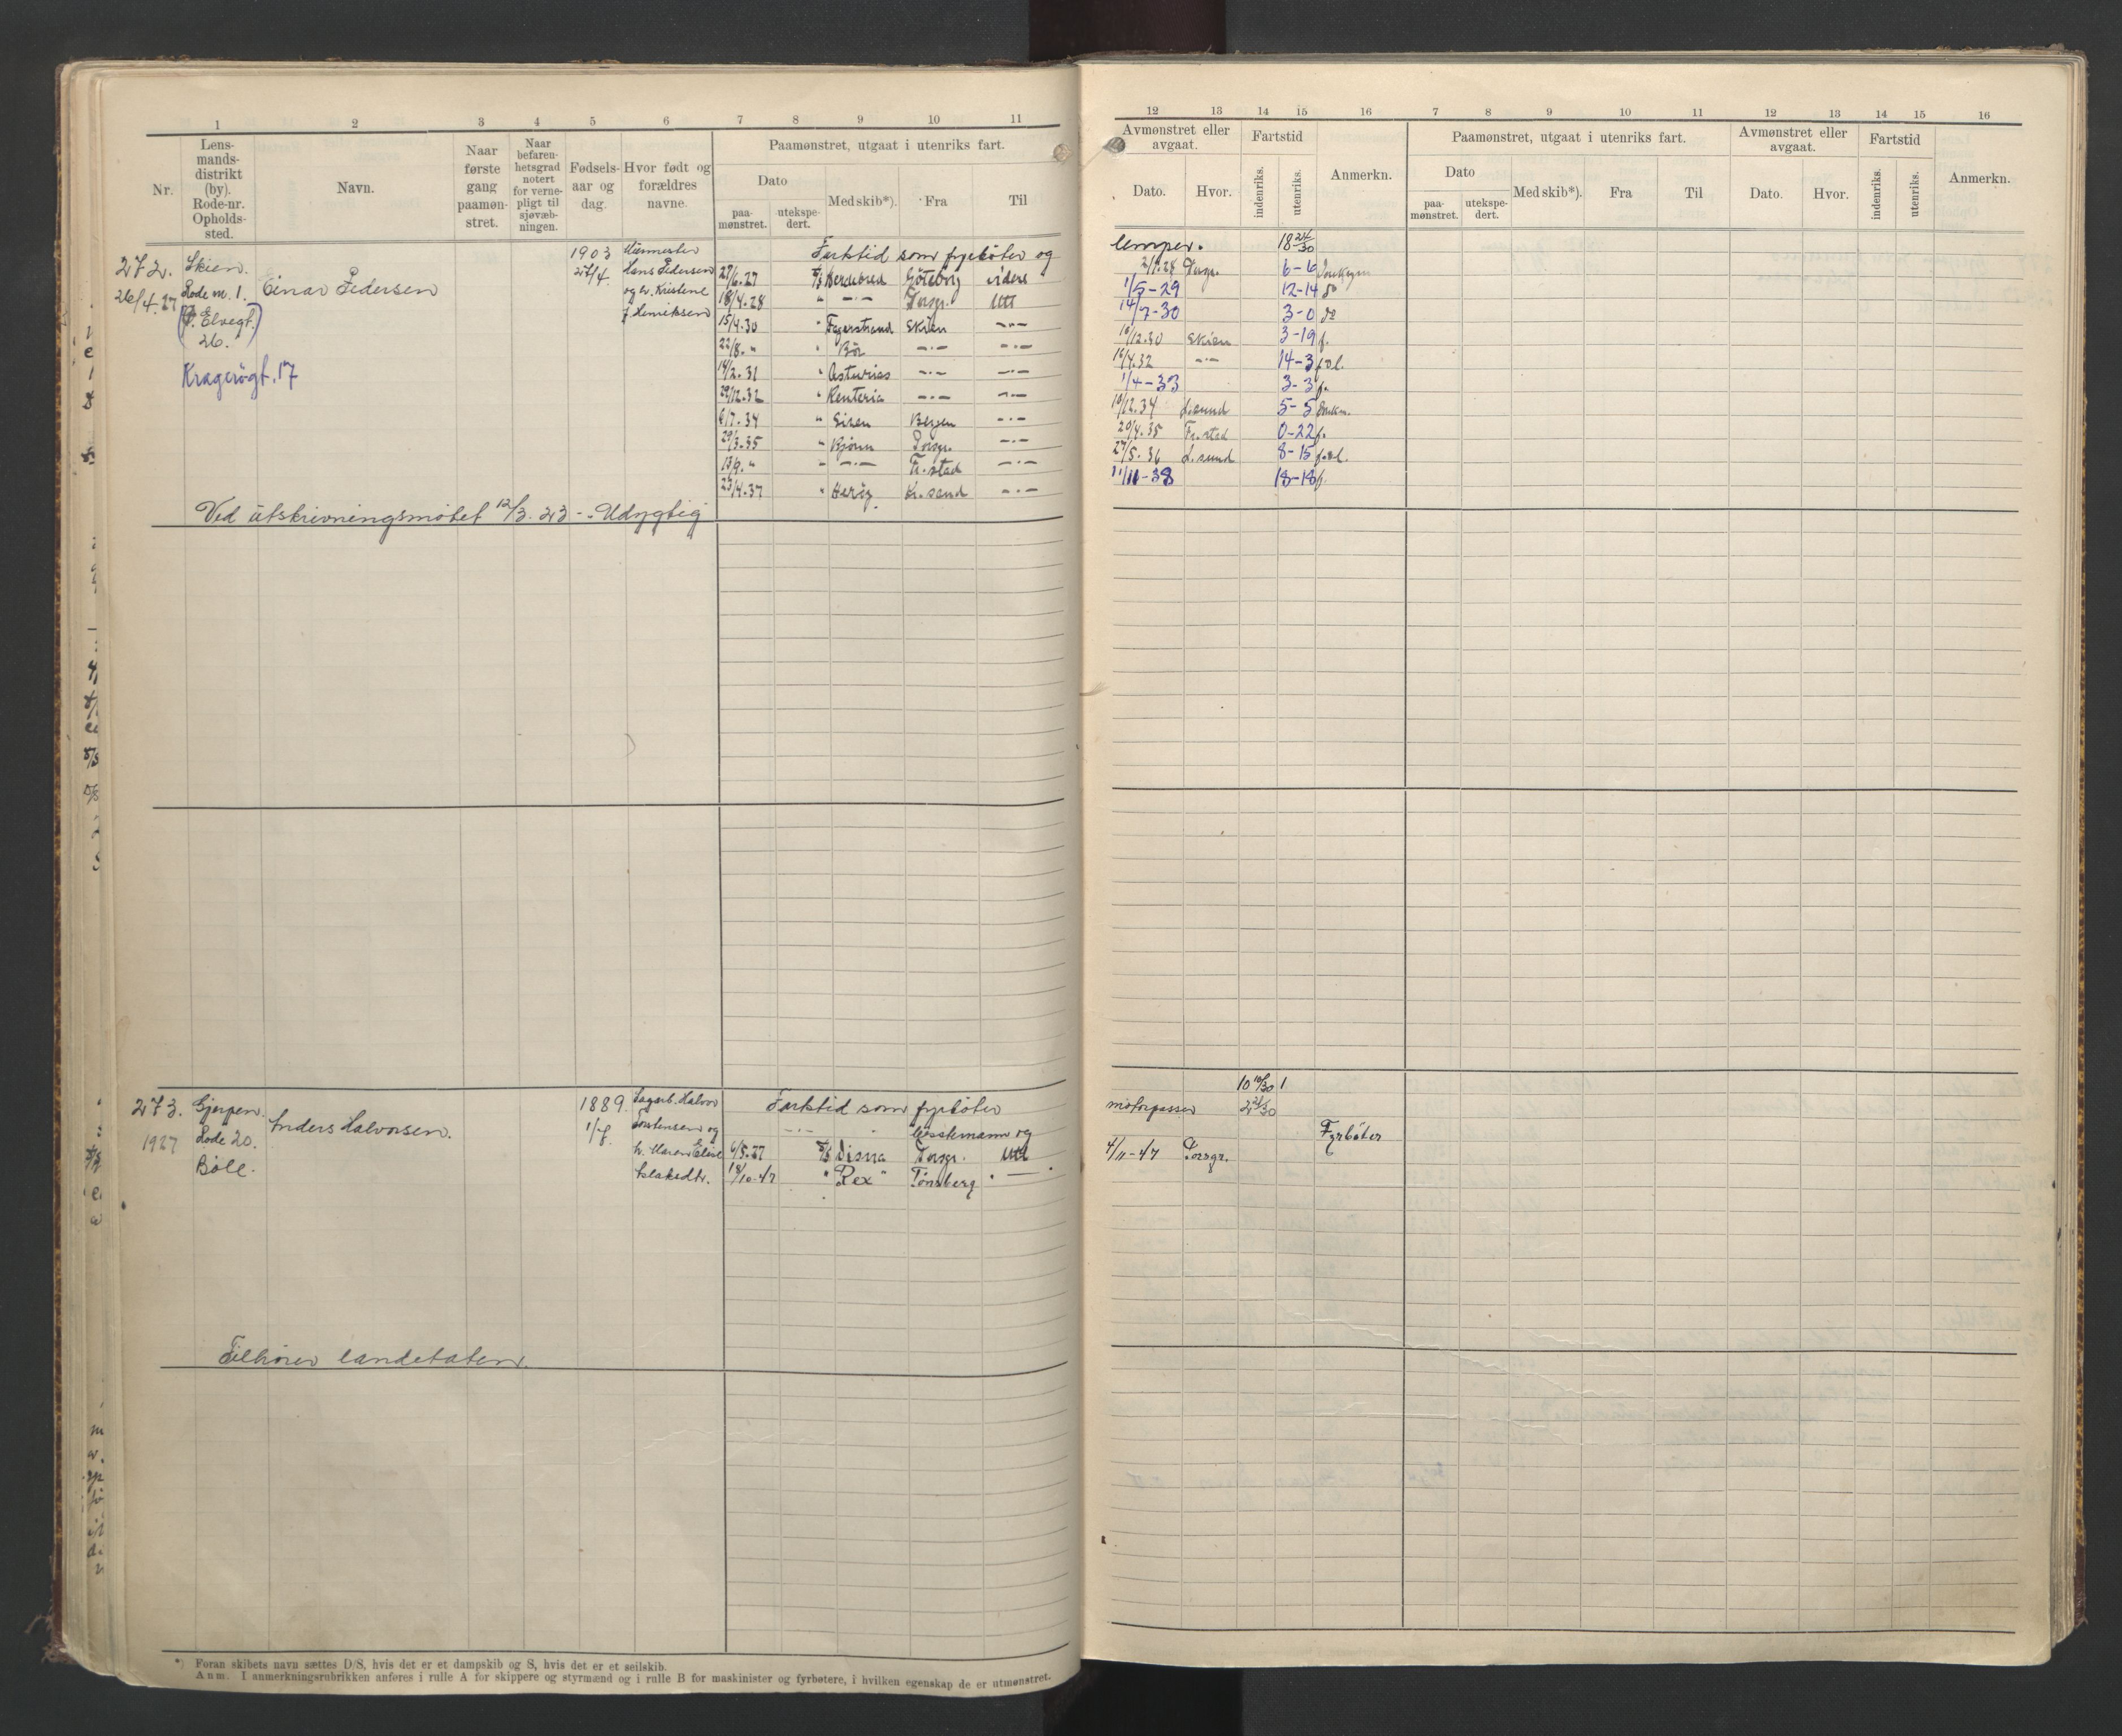 1 2 3 4 5 6 7 8 9 10 11
Nr.
Lens-
mands-
distrikt
(by).
Rode-nr.
Opholds-
sted.
Navn.
Naar
første
gang
paamøn-
stret.
Naar
befaren-
hetsgrad
notert
for verne-
pligt til
sjøvæb-
ningen.
Fødsels-
aar og
dag.
Hvor født og
forældres
navne.
Paamønstret, utgaat i utenriks fart.
Dato
paa-
mønstret.
utekspe-
dert.
Med skib*).
Fra
Til
272. Skien. Einar Pedersen 1903 Murmester Farttid som fyrbøter og
26/4.27 Rode nr. 1. 27/4. Hans Pedersen 27/6.27 D/S Herdebred Göteborg videre
Elvegt. og h. Kristene 18/4.28 " —·— Porsgr. Utl
26. f. Henriksen 15/4.30 " Fagerstrand Skien —·—
22/8. " " Bør —·— —·—
Kragerøgt. 17 14/2.31 " Asturias —·— —·—
29/12.32 " Renteria —·— —·—
6/7.34 " Siren Bergen —·—
29/3.35 " Bjønn Porsgr. —·—
13/9. " " —·— Fr.stad —·—
23/4.37 " Herøy Kr.sand —·—
Ved utskrivningsmøtet 12/3.23 - Udygtig
273. Gjerpen. Anders Halvorsen. 1889. Sagarb. Halvor Farttid som fyrbøter
1927 Rode 20. 1/8. Torstensen og —·— " Lossemann og
Bøle. h. Maren Elise 6/5.27 D/S Disna Porsgr. Utl
Aslaksdtr. 18/10-47 " "Rex" Tønsberg " —
Tilhører landetaten.
*) Foran skibets navn sættes D/S, hvis det er et dampskib og S, hvis det er et seilskib.
Anm. I anmerkningsrubrikken anføres i rulle A for skippere og styrmænd og i rulle B for maskinister og fyrbøtere, i hvilken egenskap de er utmønstret.
12 13 14 15 16 7 8 9 10 11 12 13 14 15 16
Avmønstret eller
avgaat.
Dato.
Hvor.
Fartstid
indenriks.
utenriks.
Anmerkn.
Paamønstret, utgaat i utenriks fart.
Dato
paa-
mønstret.
utekspe-
dert.
Med skib*).
Fra
Til
Avmønstret eller
avgaat.
Dato.
Hvor.
Fartstid
indenriks.
utenriks.
Anmerkn.
lemper. 18 24/30
2/1.28 Porsgr. 6-6
1/5-29 12-14 do
14/7-30 3-0 do
10/12.30 Skien 3-19 f.
16/4.32 —·— 14-3
1/4-33 3-3 f.
10/12.34 L.sund 5-5
20/4.35 Fr.stad 0-22 f.
27/5.36 L.sund 8-15
11/11-38 18-18 f.
10 10/30 1
motorpasser 2 21/30
Fyrbøter
4/11-47 Porsgr.